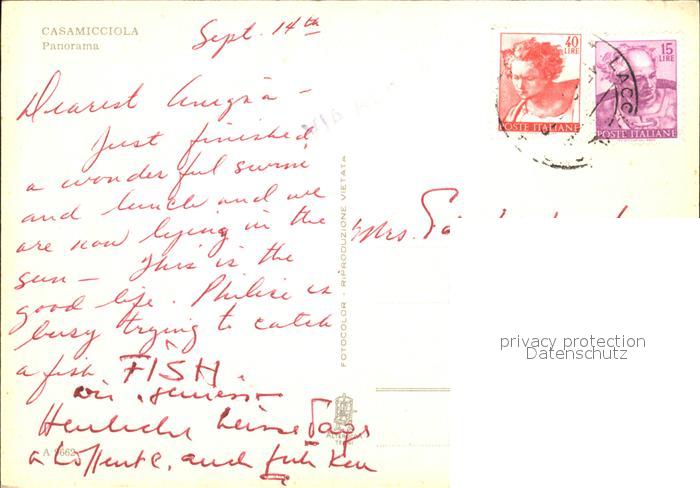 CASAMICCIOLA
Panorama
Sept. 14th
40 LIRE
POSTE ITALIANE
15 LIRE
POSTE ITALIANE
LACCO
Dearest
Just finished
a wonderful swim
and lunch and we
are now lying in the
sun — This is the
good life. is
busy trying to catch
a fish FISH.
wir
heisse Tage
A 9662
auch
FOTOCOLOR - RIPRODUZIONE VIETATA
Mrs.
privacy protection
Datenschutz